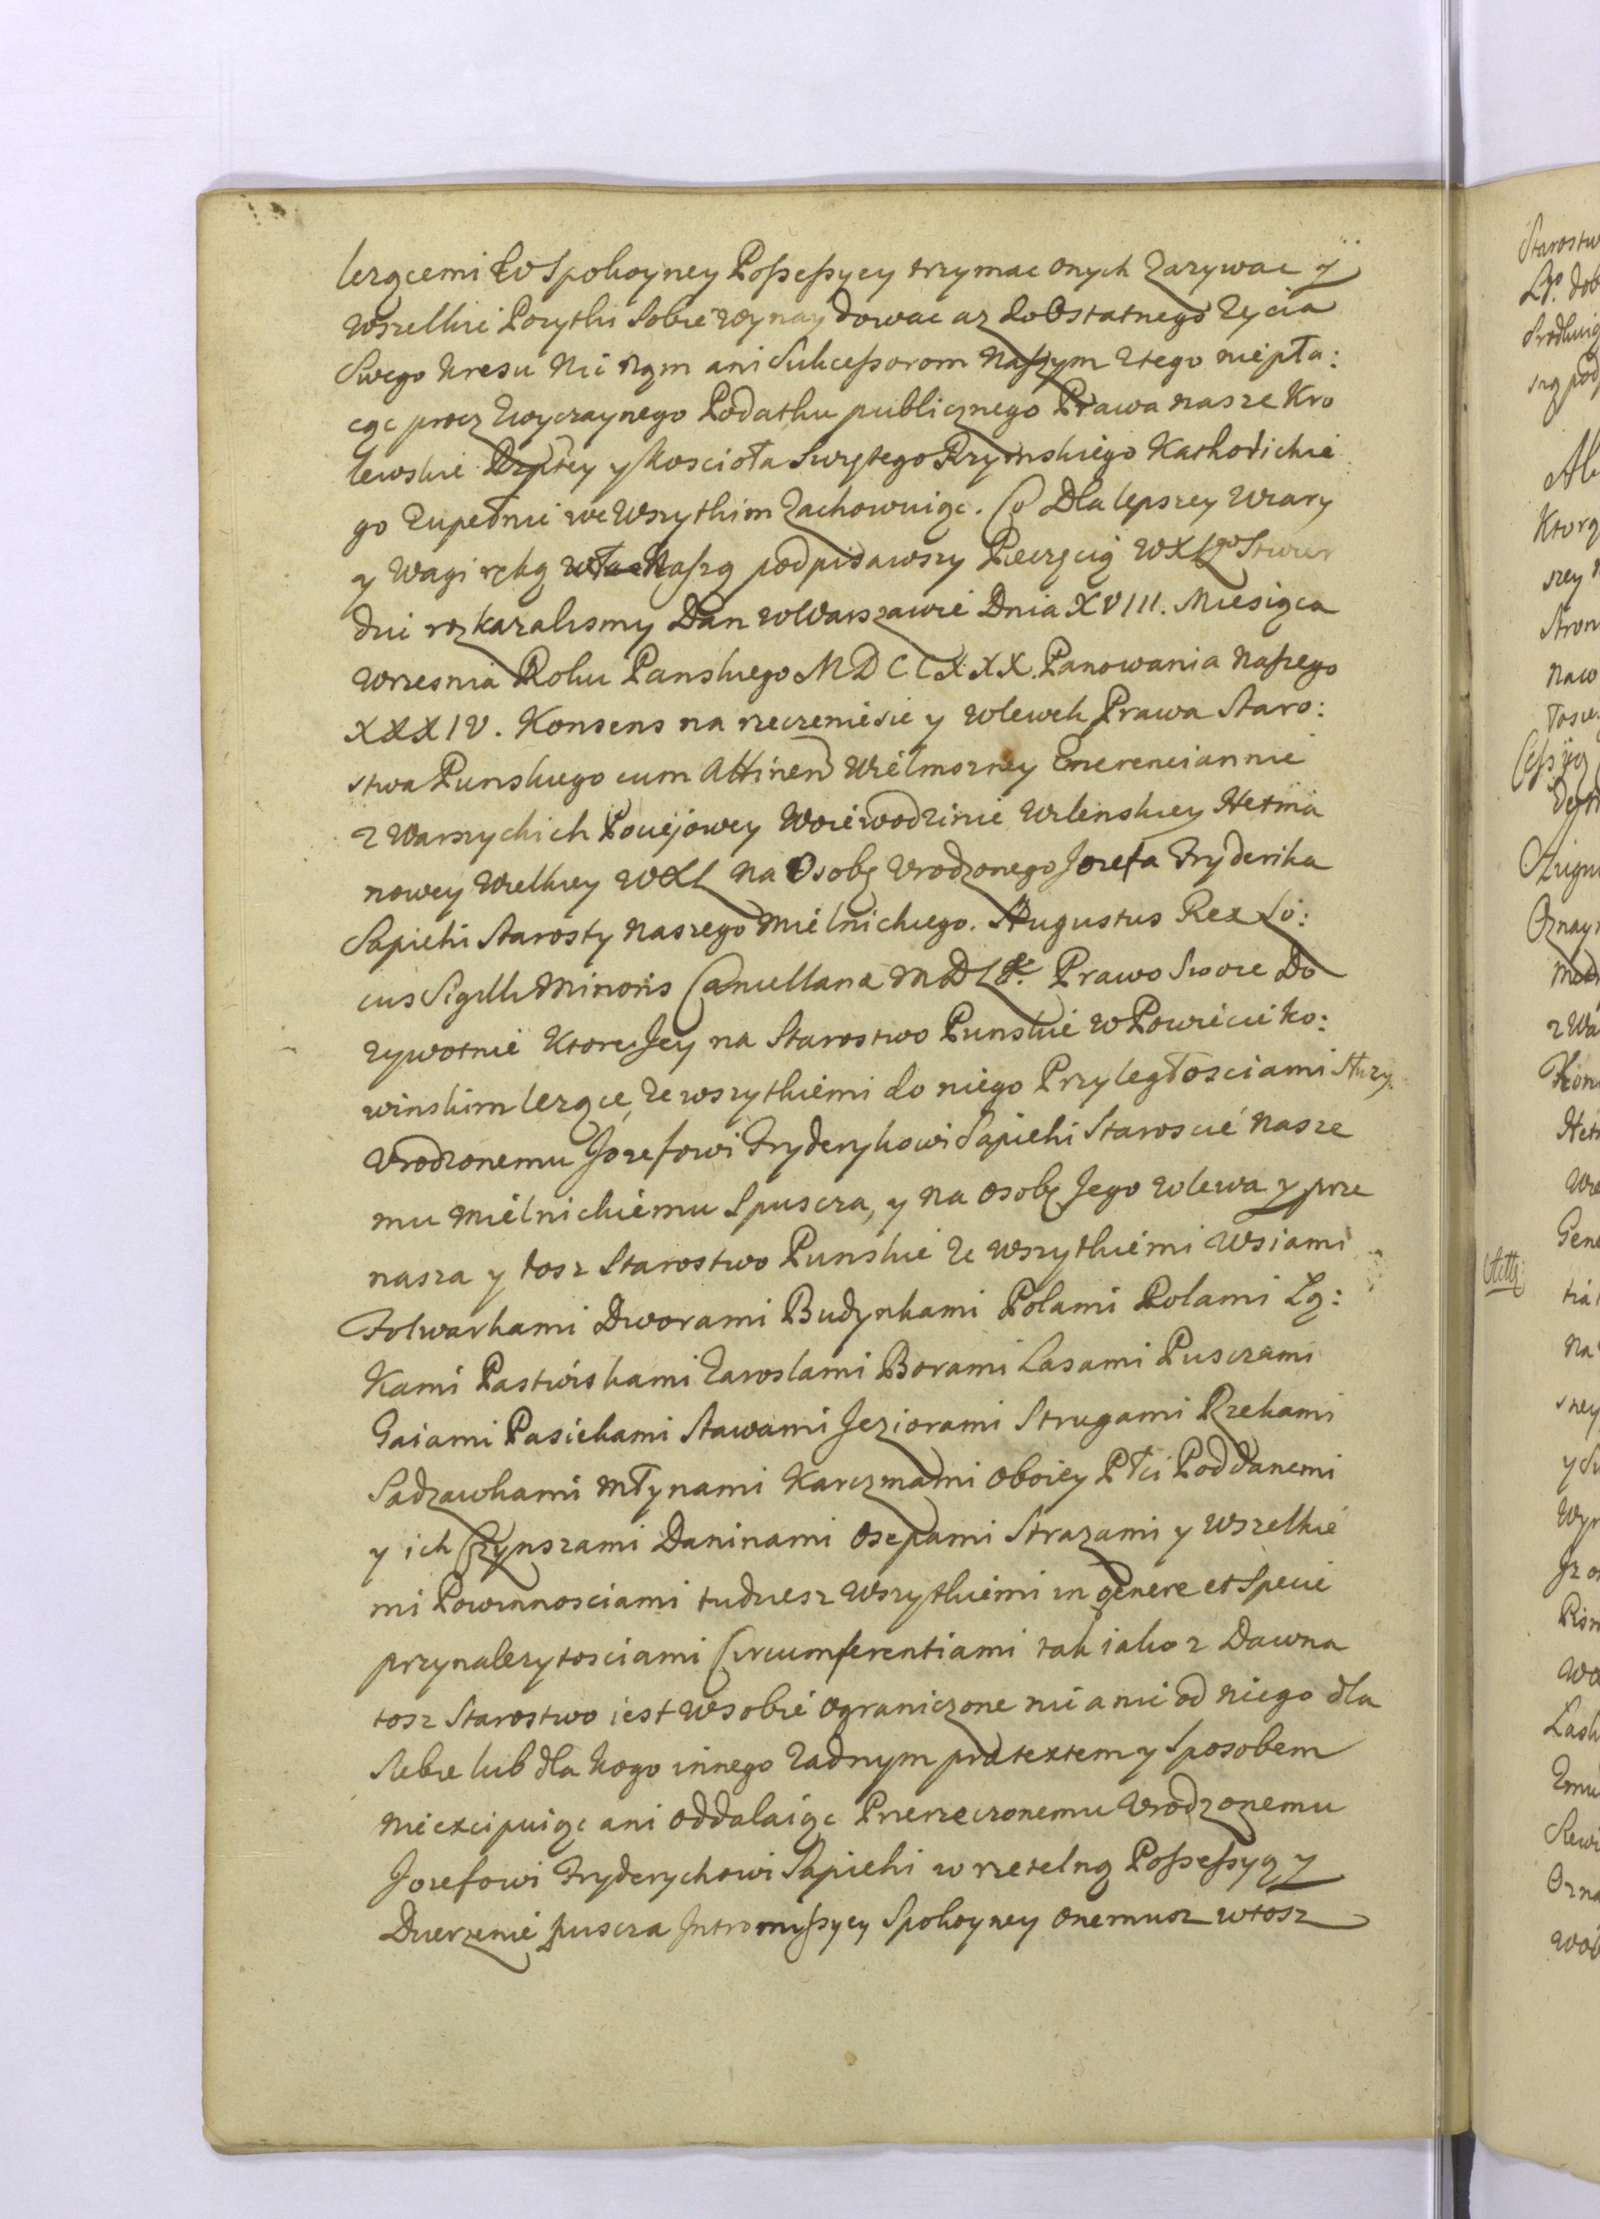 lezącemi w Spokoyney Possessyey trzymac onych Zazywac y
wszelkie Pozytki Sobie wynaydowac az do Ostatnego Zycia
Swego kresu Nic Nam ani Sukcessorom Naszym Ztego niepła:
cąc procz Zwyczaynego Podatku publicznego Prawa nasze Kro
lewskie Rzptey y Koscioła Swiętego Rzymskiego Katholickie
go Zupełnie we Wszytkim Zachowuiąc. Co Dla lepszey Wiary
y Wagi ręką Naszą podpisawszy Pieczęcią WXLgo Stwier
dzic rozkazalismy Dan w Warszawie Dnia XVIII. Miesiąca
Wrzesnia Roku Panskiego MDCCXXX. Panowania Naszego
XXXIV. Konsens na rzeczenie sie y wlewek Prawa Staro:
stwa Punskiego cum Attinen Wielmozney Emerenciannie
z Warszyckich Pociejowey Woiewodzinie Wilenskiey Hetma
nowey Wielkiey WXL na Osobę Urodzonego Jozefa Fryderika
Sapiehi Starosty Naszego Mielnickiego. Augustus Rex Lo:
cus Sigilli Minoris Cancellariæ MDL &c. Prawo Swoie Do
zywotnie Ktore Jey na Starostwo Punskie w Powiecie Ko:
winskim lezące, Ze wszytkiemi do niego Przyległosciami słuzy
Urodzonemu Jozefowi Fryderykowi Sapiehi Staroscie Nasze
mu Mielnickiemu Spuscza, y na osobę Jego wlewa y prze
nasza y tosz Starostwo Punskie Ze wszytkiemi Wsiami
Folwarkami Dworami Budynkami Polami Rolami Lą:
Kami Pastwiskami Zaroslami Borami Lasami Pusczami
Gaiami Pasiekami Stawami Jeziorami Strugami Rzekami
Sadzawkami Młynami Karczmami oboiey Płci Poddanemi
y ich Czynszami Daninami Osepami Strazami y Wszelkie
mi Powinnosciami tudziesz Wszytkiemi in genere et Specie
przynalezytosciami Circumferentiami tak iako z Dawna
tosz Starostwo iest w sobie ograniczone nic a nic od niego dla
Siebie lub dla kogo innego Zadnym prætextem y Sposobem
nieexcipuiąc ani oddalaiąc Przerzeczonemu Urodzonemu
Jozefowi Fryderychowi Sapiehi w rzetelną Possessyą y
Dzierzenie puscza Intromissyey Spokoyney onemusz wtosz